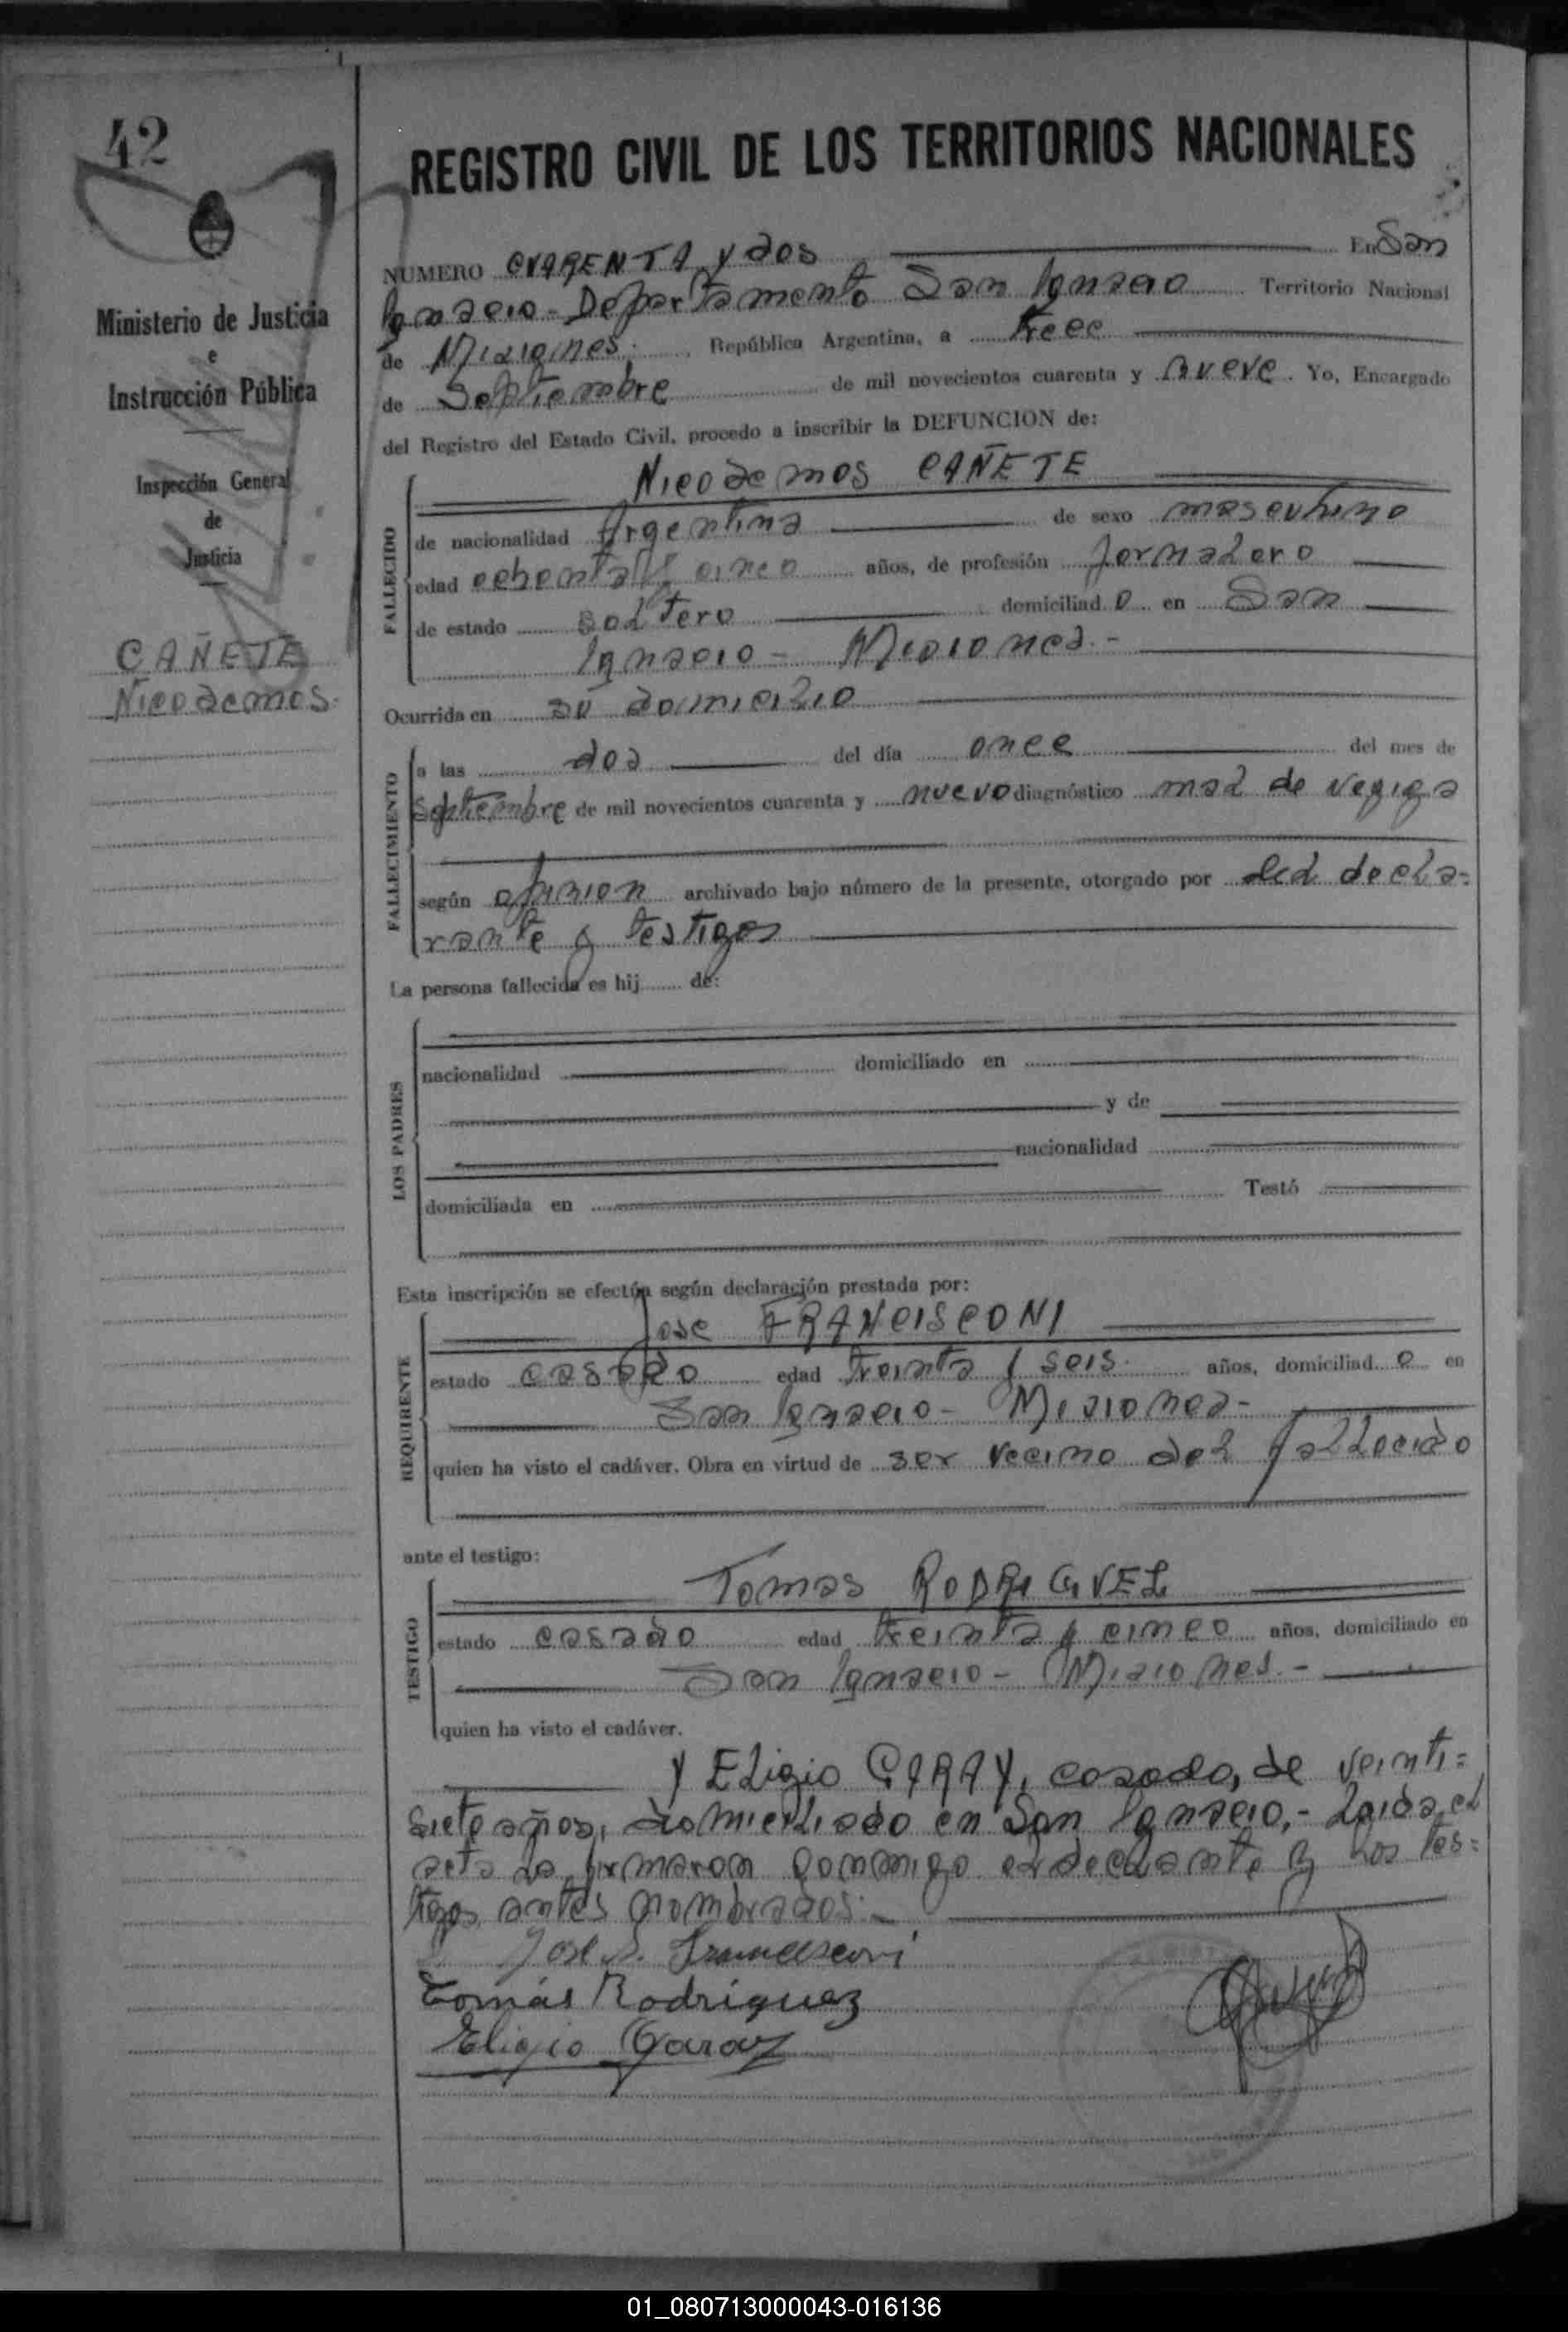 42
REGISTRO CIVIL DE LOS TERRITORIOS NACIONALES
Ministerio de Justicia
e
Instrucción Pública
Inspección General
de
Justicia
CAÑETE
Nicodemos.
NUMERO CUARENTA y dos En San
Ignacio - Departamento San Ignacio Territorio Nacional
de Misiones. República Argentina, a trece
de Septiembre de mil novecientos cuarenta y nueve. Yo, Encargado
del Registro del Estado Civil, procedo a inscribir la DEFUNCION de:
Nicodemos CAÑETE
FALLECIDO
de nacionalidad Argentina de sexo masculino
edad ochenta y cinco años, de profesión Jornalero
de estado soltero domiciliad o en San
Ignacio - Misiones.-
Ocurrida en su domicilio
FALLECIMIENTO
a las dos del día once del mes de
Septiembre de mil novecientos cuarenta y nuevo diagnóstico mal de vegiga
según archivado bajo número de la presente, otorgado por del decla-
rante y testigos
La persona fallecida es hij de:
LOS PADRES
nacionalidad domiciliado en
y de
nacionalidad
domiciliada en Testó
Esta inscripción se efectúa según declaración prestada por:
Jose FRANCISCONI
REQUIRENTE
estado casado edad treinta y seis. años, domiciliad o en
San Ignacio - Misiones-
quien ha visto el cadáver. Obra en virtud de ser vecino del fallecido
ante el testigo:
Tomas RODRIGUEZ
TESTIGO
estado casado edad treinta y cinco años, domiciliado en
San Ignacio - Misiones.-
quien ha visto el cadáver.
y Eligio GARAY, casado, de veinti=
siete años, domiciliado en San Ignacio,- Leida el
acta la firmaron conmigo el declante y los tes=
tigos antes nombrados.-
José Francisconi
Tomás Rodríguez
Eligio Garay
01_080713000043-016136